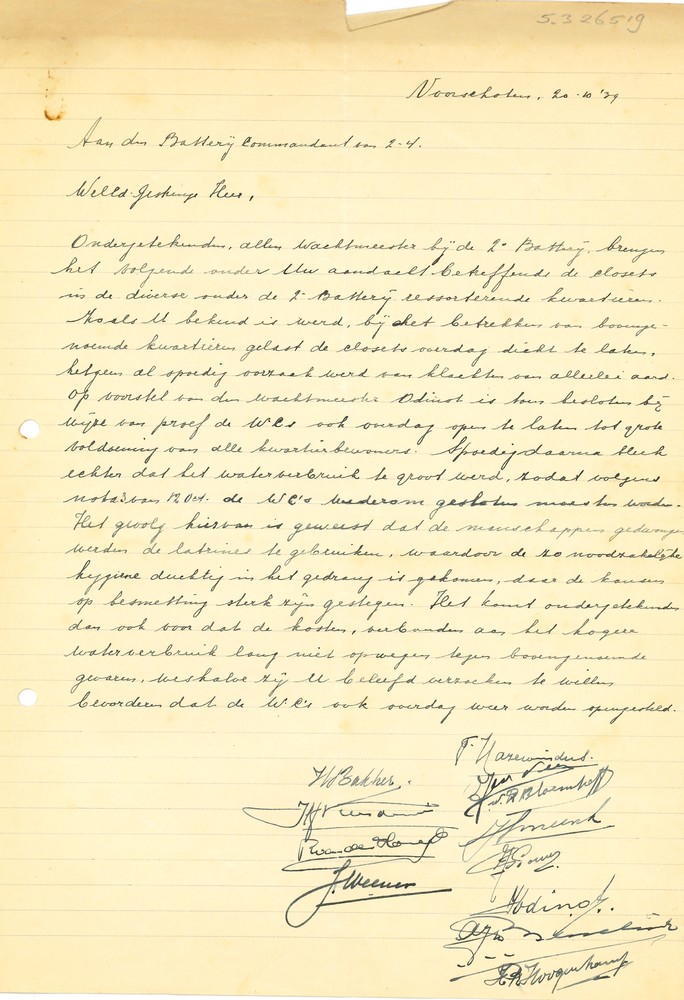 5.3 26519
Voorschoten, 20-10'39
Aan den Batterij Commandant van 2-4.
WelEd. Gestrenge Heer,
Ondergetekenden, allen wachtmeester bij de 2e Batterij, brengen
het volgende onder Uw aandacht betreffende de closets
in de diverse onder de 2e Batterij ressorterende kwartieren.
Zoals U bekend is werd, bij het betrekken van bovenge-
noemde kwartieren gelast de closets overdag dicht te laten,
hetgeen al spoedig oorzaak werd van klachten van allerlei aard.
Op voorstel van den wachtmeester Odinot is toen besloten bij
wijze van proef de WCs ook overdag open te laten tot grote
voldoening van alle kwartierbewoners. Spoedig daarna bleek
echter dat het waterverbruik te groot werd, zodat volgens
nota 3 van 12 Oct. de W.C's wederom gesloten moesten worden.
Het gevolg hiervan is geweest dat de manschappen gedwongen
werden de latrines te gebruiken, waardoor de zo noodzakelijke
hygiene duchtig in het gedrang is gekomen, daar de kansen
op besmetting sterk zijn gestegen. Het komt ondergetekenden
dan ook voor dat de kosten, verbonden aan het hogere
waterverbruik lang niet opwegen tegen bovengenoemde
gevaren, weshalve zij U beleefd verzoeken te willen
bevorderen dat de W.C's ook overdag weer worden opengesteld.
HdBakker.
J. Weener
Odinot.
Hoogenkamp